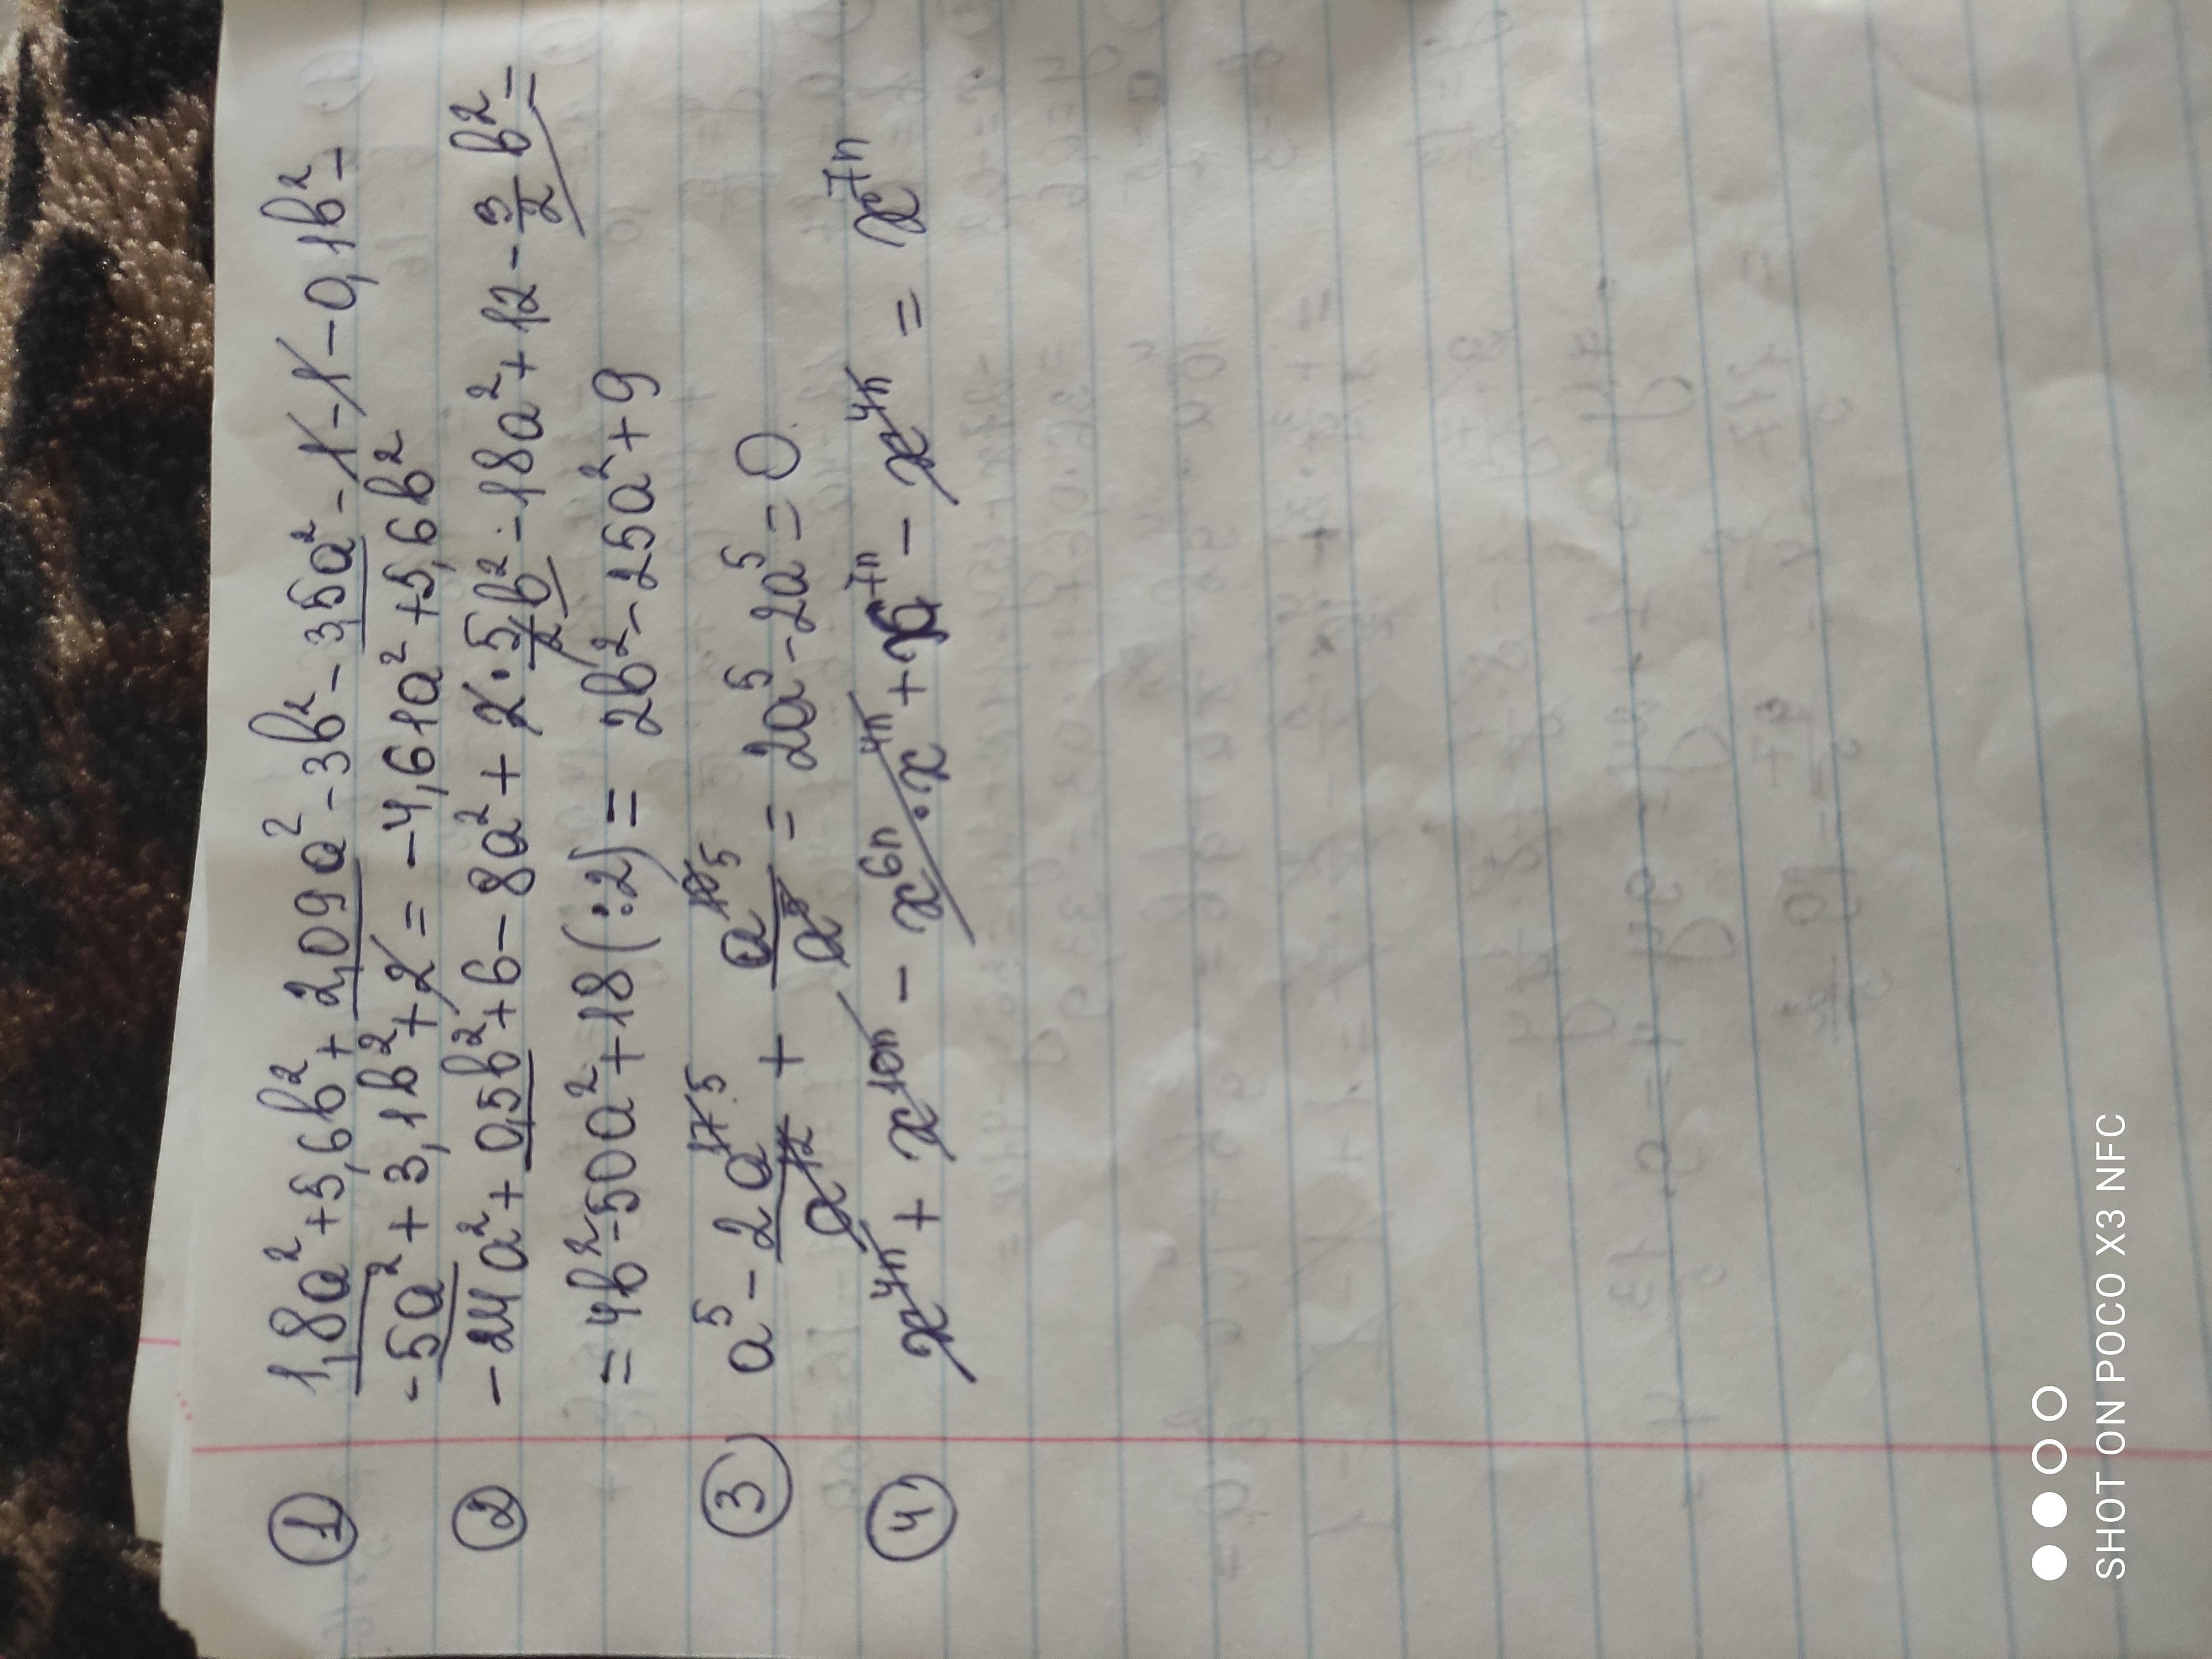 ① 1,8a² + 5,6b² + 2,09a² - 3b² - 3,5a² - 1 - 1 - 0,1b² -
- 5a² + 3,1b² + 2 = -4,61a² + 5,6b²
② -24a² + 0,5b² + 6 - 8a² + 2 · 5/2 b² - 18a² + 12 - 3/2 b² =
= 4b² - 50a² + 18 (:2) = 2b² - 25a² + 9
③ a⁵ - 2a¹⁷ ⁵/a¹² + a¹⁰ ⁵/a⁵ = 2a⁵ - 2a⁵ = 0
④ x⁴ⁿ + x¹⁰ⁿ - x⁶ⁿ · x⁴ⁿ + x⁷ⁿ - x⁴ⁿ = x⁷ⁿ
SHOT ON POCO X3 NFC